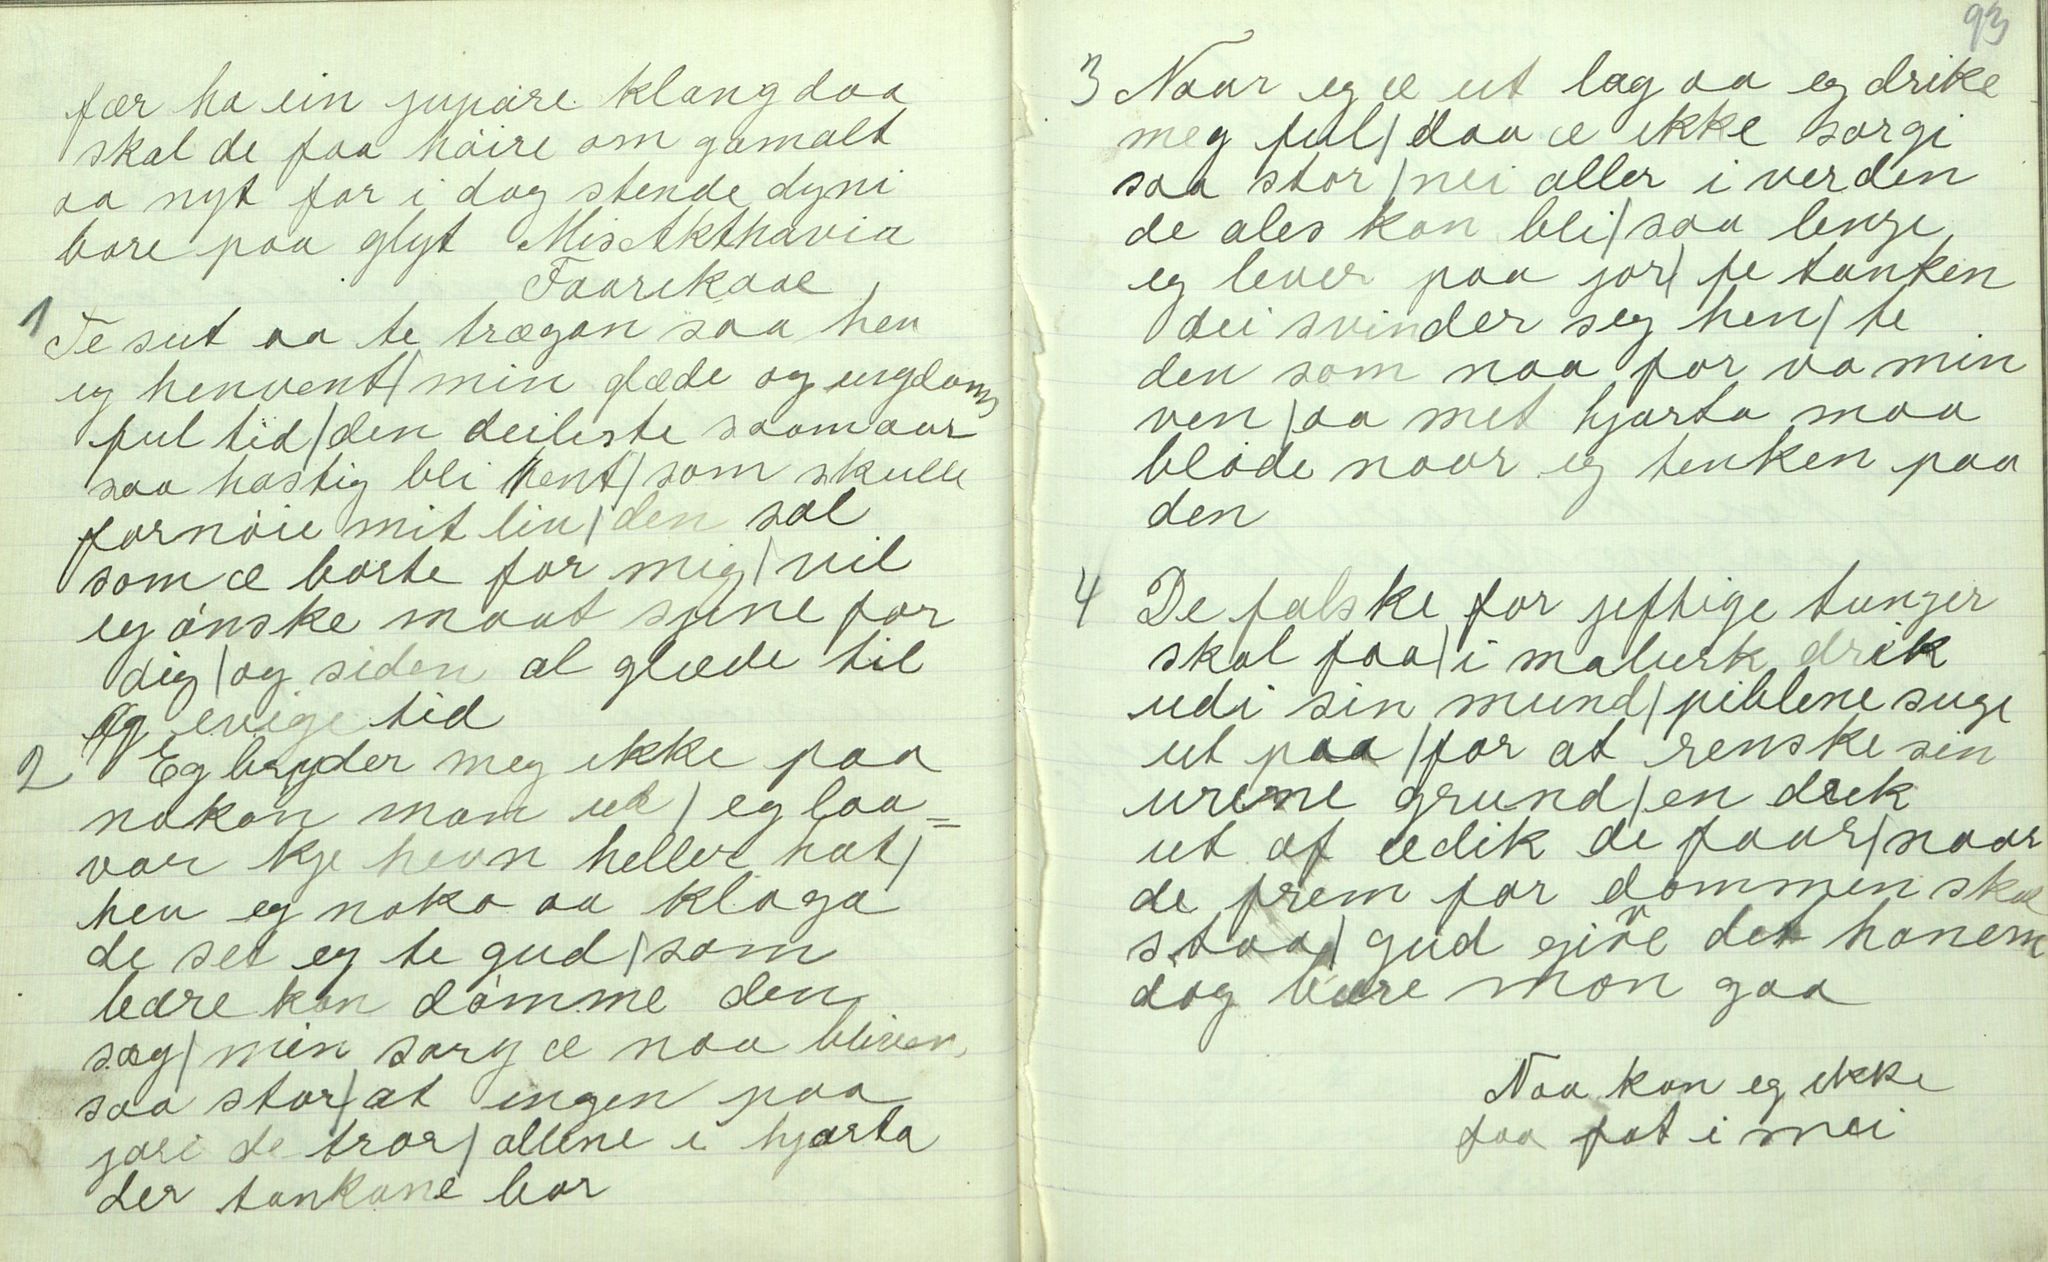 fær ha ein jupare klang daa
skal de faa høire om gamalt
aa nyt for i dag stende dyni
bare paa glyt Mis Akthavia
Faarikaal
1 Te sut aa te trægan saa heu
eg henvent / min glæde og ungdoms
ful tid / den deileste saamaar
saa hastig bli kent / som skulle
fornøie mit liv / den sol
som æ borte for mig / vil
eg ønske maat sjine for
dig / og siden al glæde til
evige tid
2 Eg bryder meg ikke paa
nokon mans ud / eg laa=
var kje hevn heller hat /
heu eg noko aa klaga
de set eg te gud / som
bedre kan dømme den
sag / min sorg æ naa bliven,
saa stor / at ingen paa
jori de tror / allene i hjarta
der tankane bor
93
3 Naar eg æ ut lag aa eg drike
meg ful / daa æ ikke sorgi
saa stor / nei aller i verden
de ales kan bli / saa lenge
eg lever paa jor / fe tanken
dei svinder seg hen / te
den som naa for va min
ven / aa met hjarta maa
bløde naar eg tenken paa
den
4 De falske for jeftige tunger
skal faa / i malurk drik
udi sin mund / piblene suge
ut paa / for at renske sin
urene grund / en drek
ut af ædik de faar / naar
de frem for dømmen skal
staa / gud give det honem
dog bære mon gaa
Naa kan eg ikke
faa fat i mei